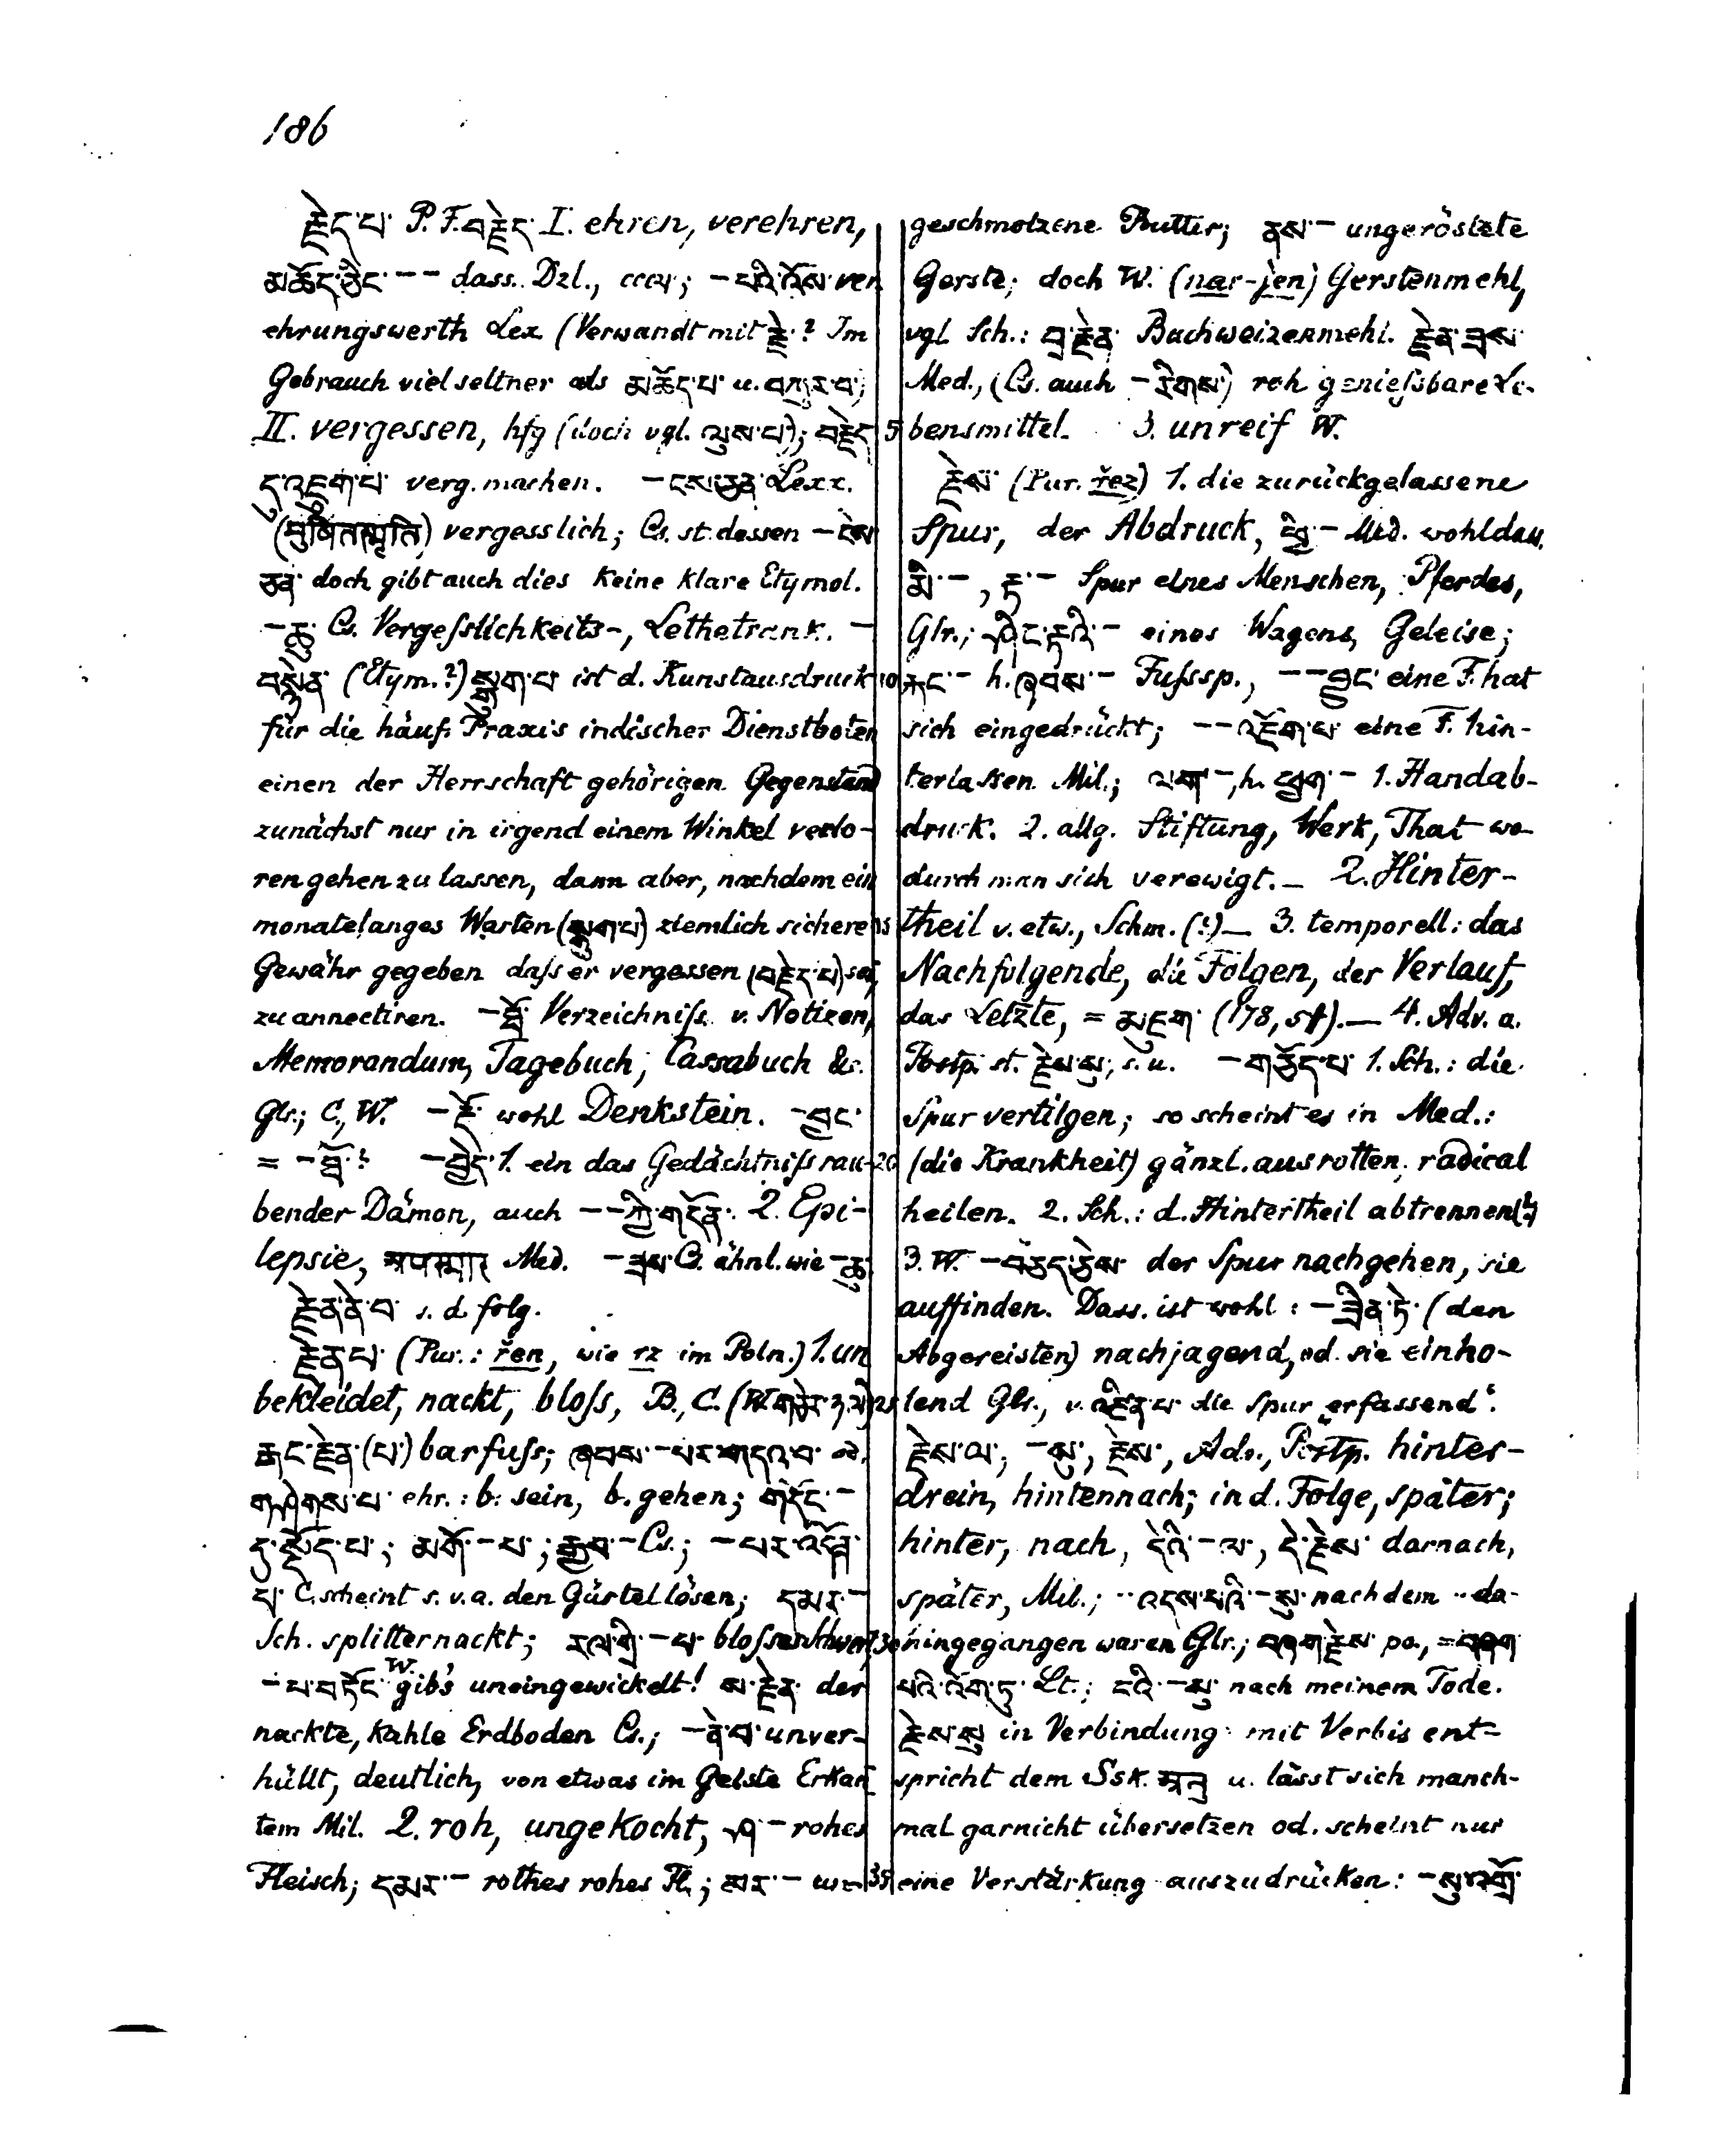 186
རྗེད་པ་ P. F. བརྗེད་ I. ehren, verehren,
མཆོད་ཅིང་ – – dass. Dzl., – པའི་འོས་ ver
ehrungswerth Lex. (Verwandt mit རྗེ་? Im
Gebrauch viel seltner als མཆོད་པ་ u. བཀུར་བ་)
II. vergessen, hfg (doch vgl. ལུས་པ་); བརྗེད་
དུ་འཇུག་པ་ verg. machen. – ངས་ཅན་ Lexx.
vergesslich; Cs. st. dessen – ངེས་
ཅན་ doch gibt auch dies keine klare Etymol.
– ཆུ་ Cs. Vergeſslichkeits-, Lethetrank. –
(Etym.?) ist d. Kunstausdruck
für die häuf. Praxis indischer Dienstboten
einen der Herrschaft gehörigen Gegenstand
zunächst nur in irgend einem Winkel verlo-
ren gehen zu lassen, dann aber, nachdem ein
monatelanges Warten (སྒུག་པ་) ziemlich sichere
Gewähr gegeben daſs er vergessen (བརྗེད་པ་) sei,
zu annectiren. – ཐོ་ Verzeichniſs v. Notizen,
Memorandum, Tagebuch, Cassabuch &c.
Glr.; C., W. – རྡོ་ wohl Denkstein. – བྱང་
= – ཐོ་? – བྱེད་ 1. ein das Gedächtniſs rau-
bender Dämon, auch – – ཀྱི་གདོན་. 2. Epi-
lepsie, अपस्मार Med. – ཟས་ Cs. ähnl. wie – ཆུ་
རྗེན་ནེ་བ་ s. d. folg.
རྗེན་པ་ (Pur.: řen, wie rz im Poln.) 1. un
bekleidet, nackt, bloſs, B., C. (W.
རྐང་རྗེན་(པ་) barfuſs; ཞབས་ – པར་གདའ་བ་ od.
གཤེགས་པ་ ehr.: b. sein, b. gehen; གདོང་ –
དུ་སྡོད་པ་; མགོ་ – པ་; རྒྱབ་ – Cs.; – པར་འདོན་
པ་ C. scheint s. v. a. den Gürtel lösen; དམར་ –
Sch. splitternackt; རལ་གྲི་ – པ་ bloſses Schwert,
– པ་བཏོང་ W. gib's uneingewickelt! ས་རྗེན་ der
nackte, kahle Erdboden Cs.; – ནེ་བ་ unver-
hüllt, deutlich, von etwas im Geiste Erkan
tem Mil. 2. roh, ungekocht, ཤ་ – rohes
Fleisch; དམར་ – rothes rohes Fl.; མར་ – un
5
10
15
20
25
30
35
geschmolzene Butter; ནས་ – ungeröstete
Gerste; doch W. (nar-jen) Gerstenmehl,
vgl Sch.: བྲ་རྗེན་ Buchweizenmehl. རྗེན་ཟས་
Med., (Cs. auch – རིགས་) roh genieſsbare Le-
bensmittel. 3. unreif W.
རྗེས་ (Pur. řez) 1. die zurückgelassene
Spur, der Abdruck, – Med. wohl dass.
མི་ –, རྟ་ – Spur eines Menschen, Pferdes,
Glr.; ཤིང་རྟའི་ – eines Wagens, Geleise;
རྐང་ – h. ཞབས་ – Fuſssp., – – བྱུང་ eine F. hat
sich eingedrückt; – – འཇོག་པ་ eine F. hin-
terlassen Mil.; ལག་ –, h. ཕྱག་ – 1. Handab-
druck. 2. allg. Stiftung, Werk, That wo-
durch man sich verewigt. – 2. Hinter-
theil v. etw., Schm. (?) – 3. temporell: das
Nachfolgende, die Folgen, der Verlauf,
das Letzte, = མཇུག་ (178, 5f). – 4. Adv. a.
Postp. st. རྗེས་སུ་, s. u. – གཅོད་པ་ 1. Sch.: die
Spur vertilgen; so scheint es in Med.:
(die Krankheit) gänzl. ausrotten, radical
heilen. 2. Sch.: d. Hintertheil abtrennen (?)
3. W. – བཅད་ཅེས་ der Spur nachgehen, sie
auffinden. Dass. ist wohl: – ཟིན་ཏེ་ (den
Abgereisten) nachjagend, od. sie einho-
lend Glr., v. འཛིན་པ་ die Spur „erfassend".
རྗེས་ལ་, – སུ་, རྗེས་, Adv., Postp. hinter-
drein, hintennach; in d. Folge, später;
hinter, nach, དེའི་ – ལ་, དེ་རྗེས་ darnach,
später, Mil.; ·· འདས་པའི་ – སུ་ nachdem ·· da-
hingegangen waren Glr.; བཞག་རྗེས་ po., = བཞག་
པའི་འོག་ཏུ་ Lt.; ངའི་ – སུ་ nach meinem Tode.
རྗེས་སུ་ in Verbindung mit Verbis ent-
spricht dem Ssk. अनु u. lässt sich manch-
mal garnicht übersetzen od. scheint nur
eine Verstärkung auszudrücken: – སུ་འགྲོ་